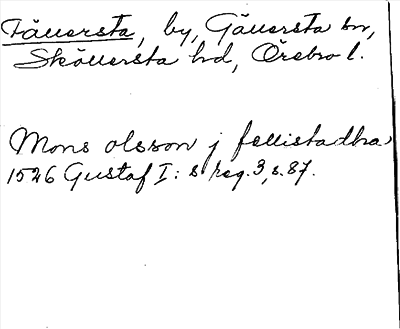 Fällersta, by, Gällersta sn,
Sköllersta hd, Örebro l.
Mons olsson j fellistadha
1526 Gustaf I: s reg. 3, s. 87.